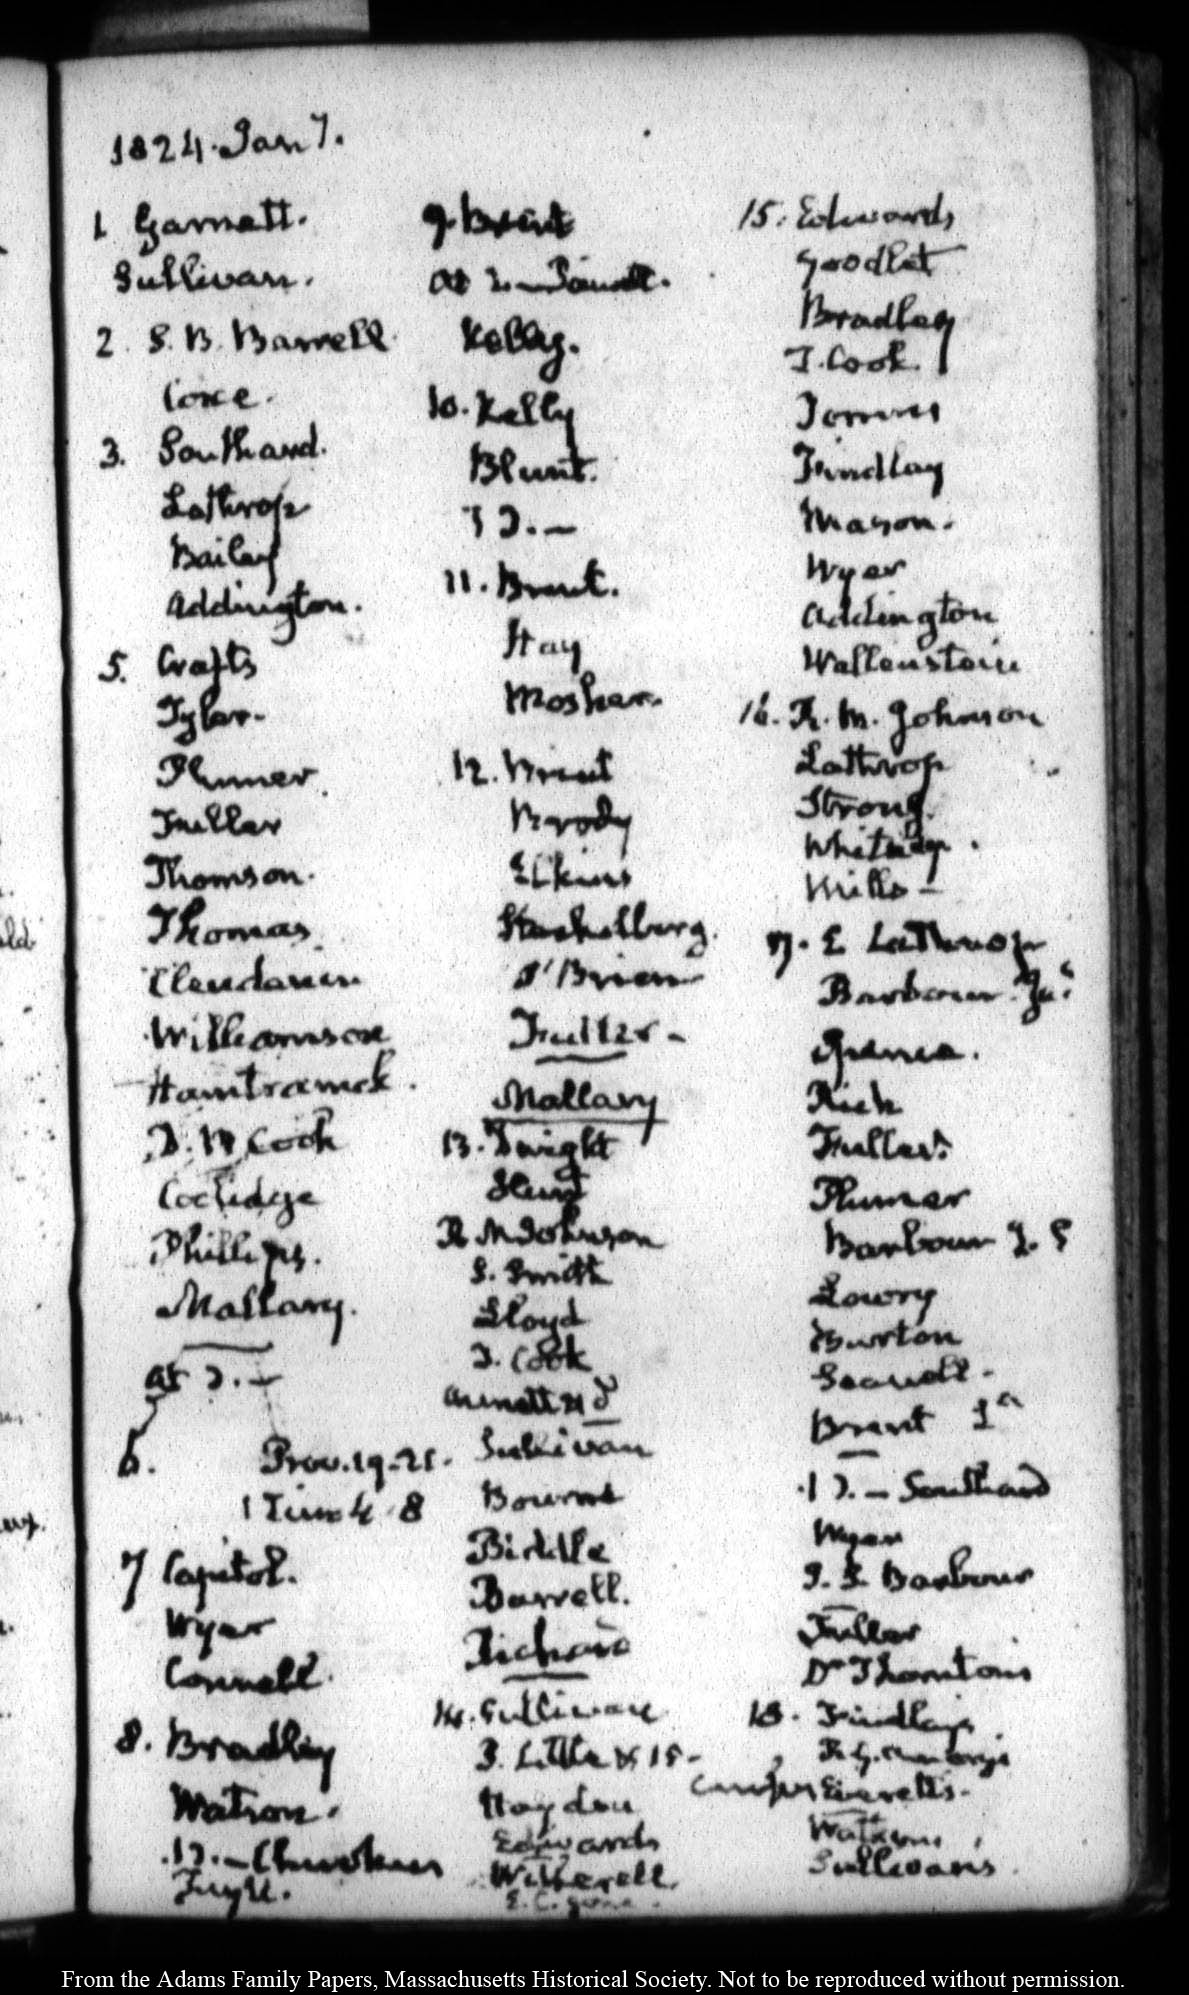 1824. Jan 7.
1 Garnett.
Sullivan.
2. S. B. Barrell
Coxe.
3. Southard.
Lathrop
Bailey
Addington.
5. Crafts
Tyler.
Plumer.
Fuller
Thomson.
Thomas
Clendanen
Williamson
Hamtramck.
D. P. Cook
Coolidge
Phillips.
Mallary.
At
6. Prov. 19-21.
1 Tim 4 8
7 Capitol.
Wyer
Connell.
8. Bradley
Watson.
17. – Cherokees
Tuyll.
9. Brent
At
Kelly.
10. Kelly
Blunt.
11. Brent.
Hay
Mosher.
12. Brent
Brody
Elkins
Stackelberg.
O'Brien
Fuller -
Mallary
13. Dwight
R. M Johnson
S. Smith
Lloyd
D. Cook
Sullivan
Bourne
Biddle
Barrell.
Richard
14. Sullivan
P. Little & 15-
Haydon
Edwards
Witherell.
15. Edwards
Goodlet
Bradley
D. Cook.
Findlay
Mason.
Wyer
Addington
Wallenstein
16. R. M. Johnson
Lathrop
Strong.
Mills -
17. S Lathrop
Barbour Ja.s
Rich
Fuller.
Plumer
Barbour J. S
Lowry
Burton
Brent
17. – Southard
Wyer
J. S. Barbour
Fuller
Dr Thornton's
18. Findlay's
Everett's.
Watkins,
Sullivan's
From the Adams Family Papers, Massachusetts Historical Society. Not to be reproduced without permission.